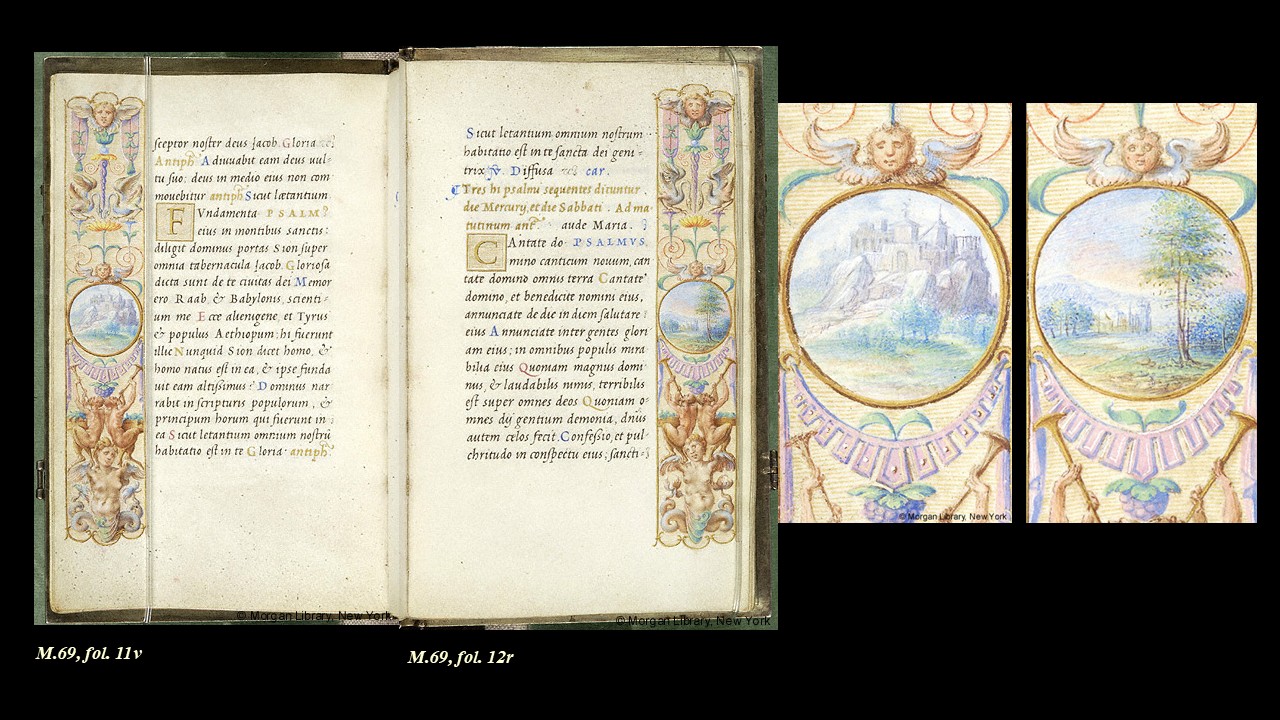 sceptor noster deus Jacob. Gloria
Antiph Adiuuabit eam deus uul-
tu suo: deus in medio eius non com
mouebitur antiph Sicut lætantium
FVndamenta PSALM
eius in montibus sanctis:
diligit dominus portas Sion super
omnia tabernacula Jacob. Gloriosa
dicta sunt de te ciuitas dei Memor
ero Raab, & Babylonis, scienti-
um me Ecce alienigenę, et Tyrus
& populus Aethiopum: hi fuerunt
illic Nunquid Sion dicet homo, &
homo natus est in ea, & ipse funda
uit eam altissimus? Dominus nar
rabit in scripturis populorum, &
principum horum qui fuerunt in
ea Sicut letantium omnium nostrũ
habitatio est in te Gloria. antiph
Sicut letantium omnium nostrum
habitatio est in te sancta dei geni-
trix. Diffusa est car.
Tres hi psalmi sequentes dicuntur
die Mercurij, et die Sabbati. Ad ma-
tutinum ant. aude Maria.
CAntate do- PSALMVS.
mino canticum nouum, can
tate domino omnis terra Cantate
domino, et benedicite nomini eius,
annunciate de die in diem salutare
eius Annunciate inter gentes glori
am eius; in omnibus populis mira
bilia eius Quoniam magnus domi-
nus, & laudabilis nimis, terribilis
est super omnes deos Quoniam o-
mnes dij gentium demonia, dñus
autem cęlos fecit. Confessio, et pul-
chritudo in conspectu eius; sancti-
© Morgan Library, New York
© Morgan Library, New York
© Morgan Library, New York
M.69, fol. 11v
M.69, fol. 12r